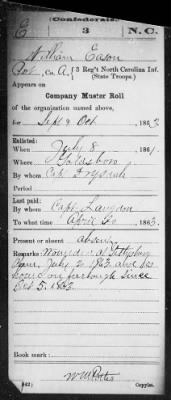 Confederate.
E 3 N.C.
William Eason
Co. A, 3 Reg't North Carolina Inf.
(State Troops.)
Appears on
Company Muster Roll
of the organization named above,
for Sept & Oct, 1863
Enlisted:
When July 8, 1861
Where Goldsboro
By whom Capt
Period
Last paid:
By whom Capt. Langdon
To what time April 30, 1863
Present or absent absent
Remarks: Wounded at Gettysburg
Penn. July 2 1863 and has
been on furlough since
Oct 5. 1863
Book mark:
(642)
Copyist.